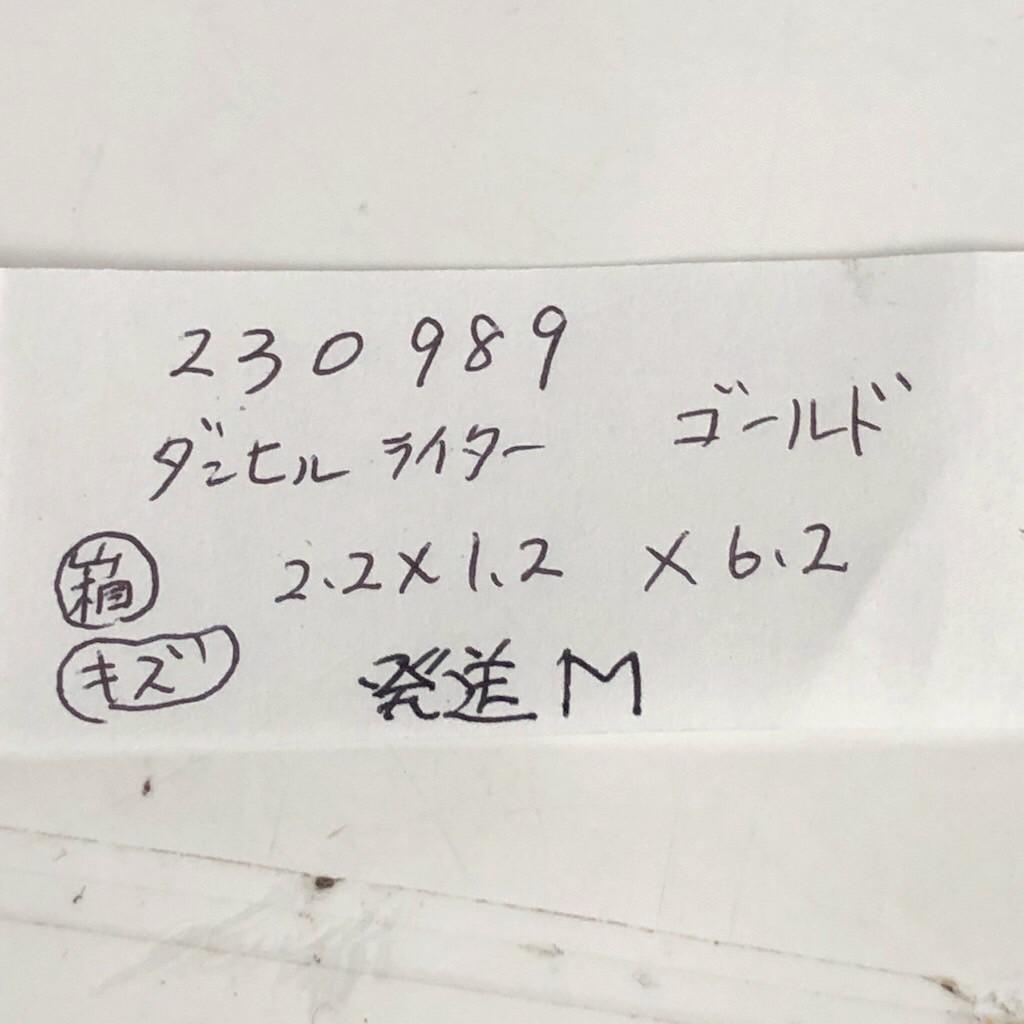 230989
ダンヒル ライター ゴールド
箱 2.2×1.2 ×6.2
キズ 発送 M